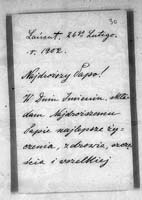 30
Laurent, 26го Lutego.
r. 1902.
Najdroższy Papo!
W Dniu Imienin, skła-
dam Najdroższemu
Papie najlepsze ży-
czenia, zdrowia, szczę-
ścia i wszelkiej